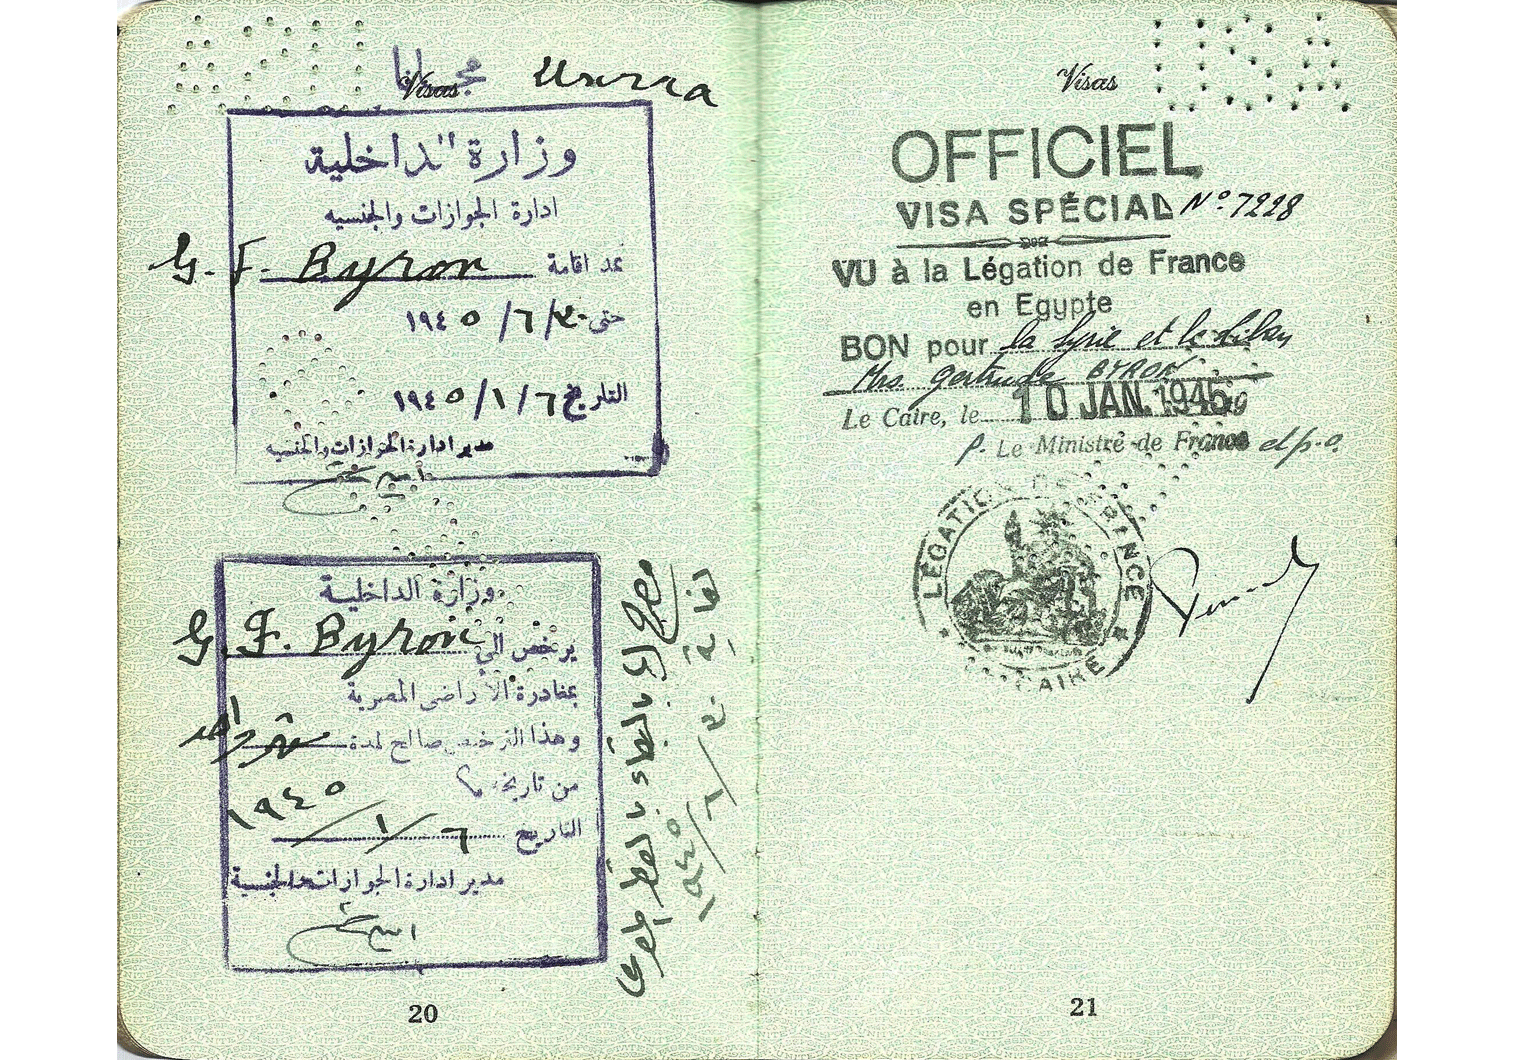 Visas
مجانا
وزارة الداخلية
ادارة الجوازات والجنسيه
G. F. Byron
مد اقامة
حتى ٣٠/٦/١٩٤٥
التاريخ ٦/١/١٩٤٥
مدير ادارة الجوازات والجنسيه
وزارة الداخلية
يرخص الى G. F. Byron
بمغادرة الأراضى المصرية
وهذا الترخيص صالح لمدة شهر واحد
من تاريخه
التاريخ ٦/١/١٩٤٥
مدير ادارة الجوازات والجنسية
لغاية ٣٠/٦/١٩٤٥
20
USA
Visas
OFFICIEL
VISA SPÉCIAL Nº 7228
VU à la Légation de France
en Egypte
BON pour la Syrie et le Liban
Mrs. Gertrude BYRON
Le Caire, le 10 JAN. 1945
p. Le Ministre de France d p.o.
LÉGATION DE FRANCE
CAIRE
21